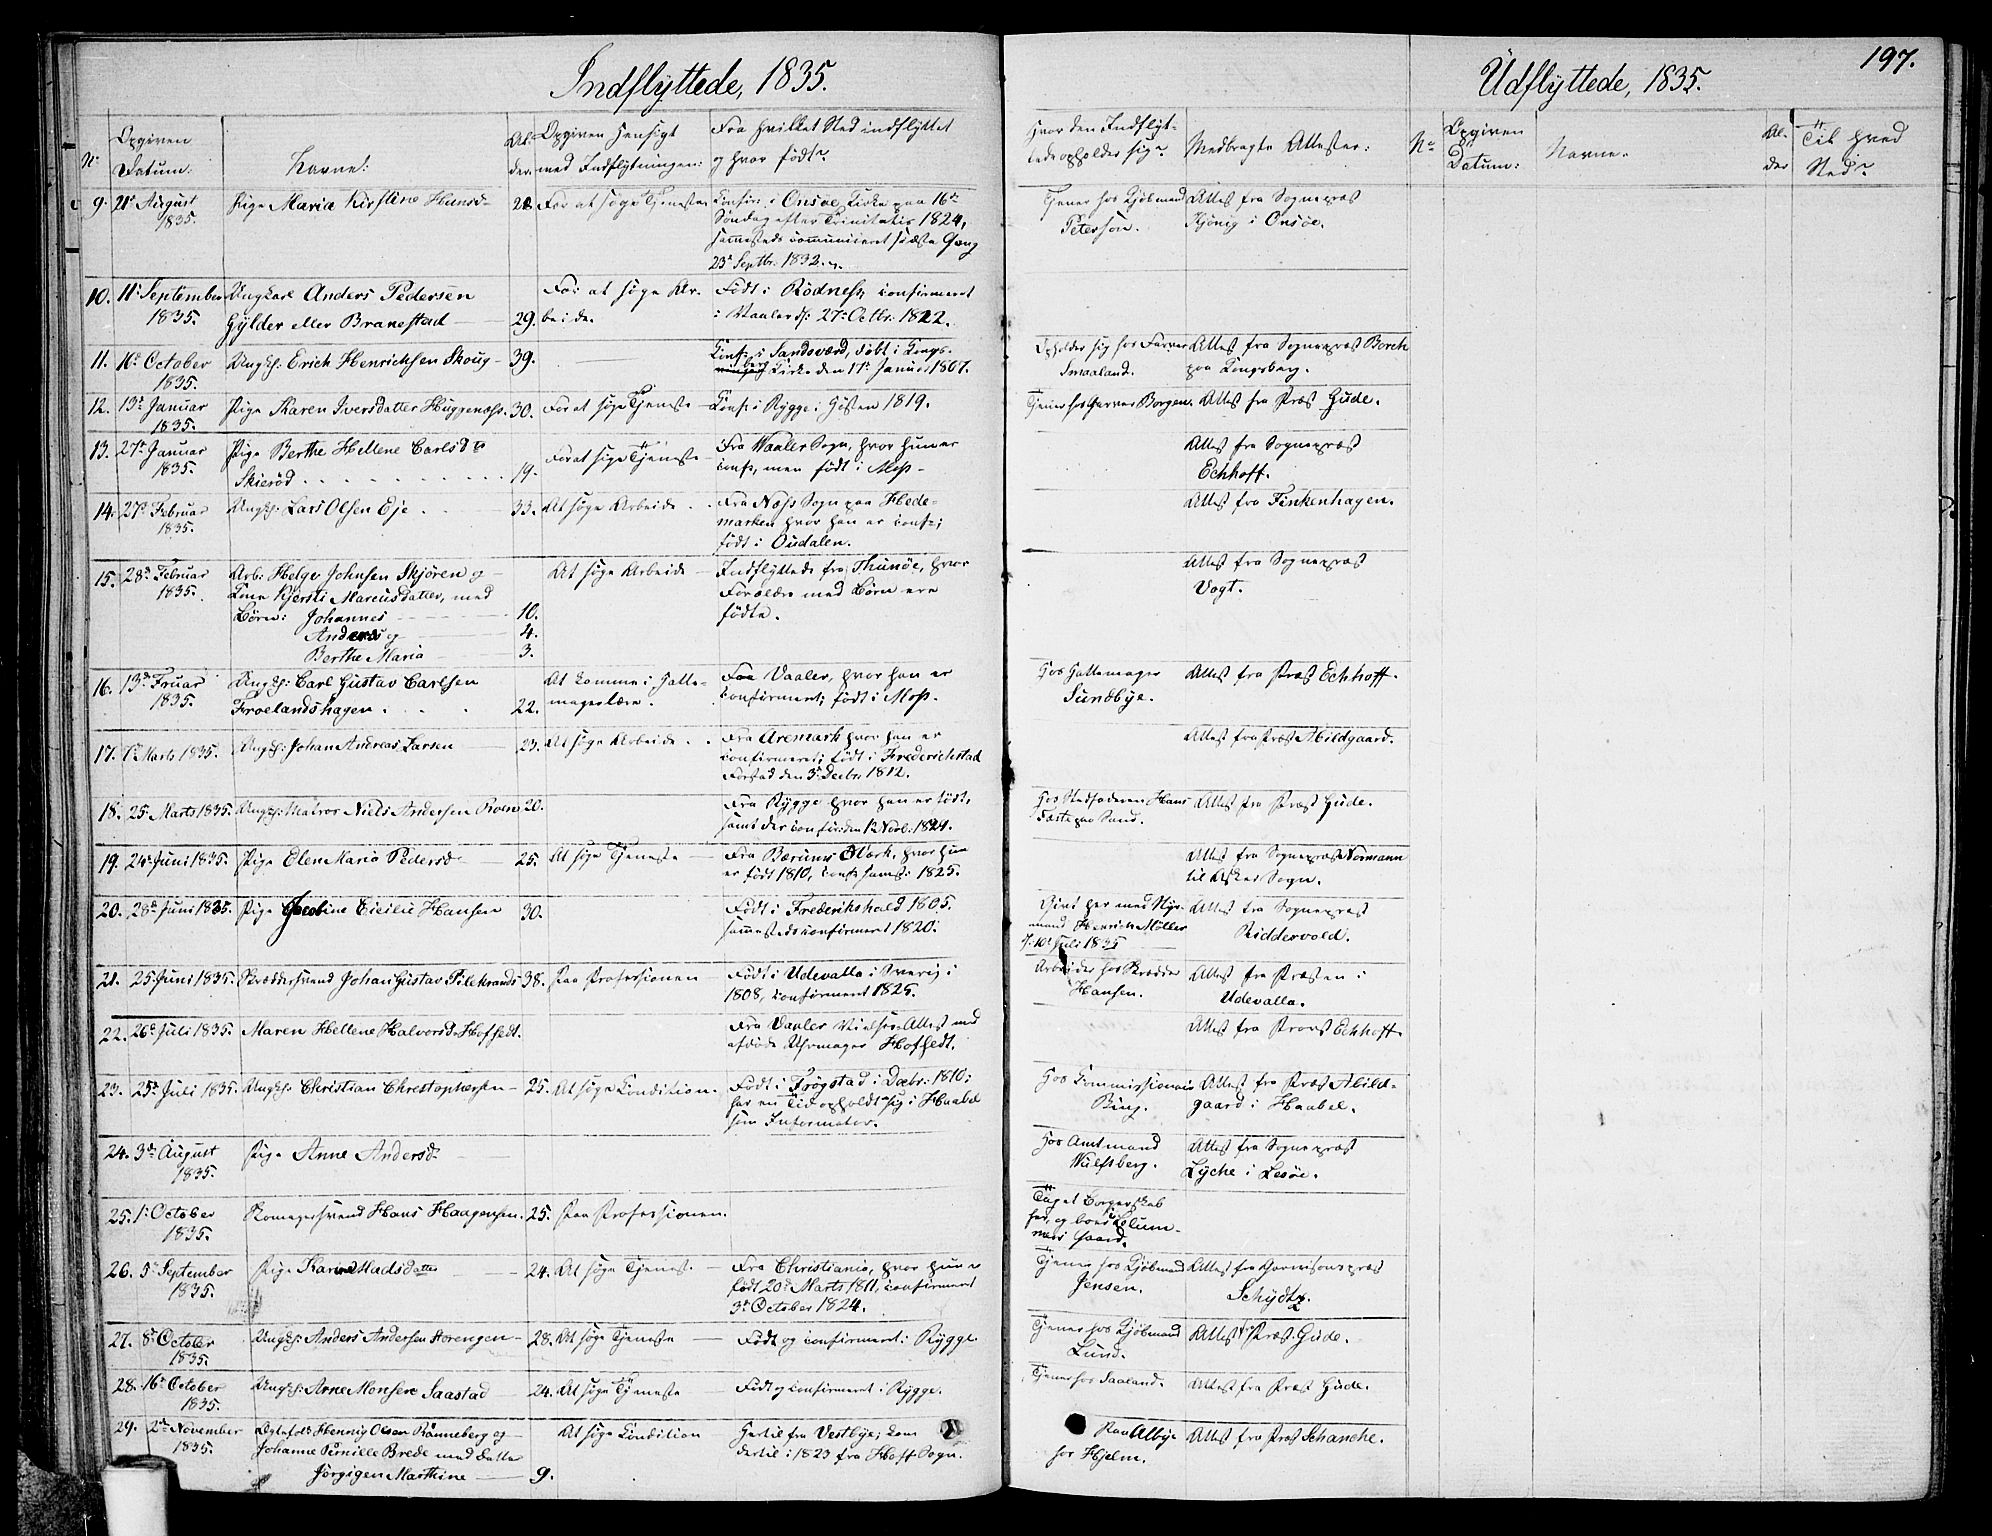 Indflyttede, 1835.
No
Opgiven
Datum:
Navne:
Al-
der.
Opgiven Hensigt
med Indflytningen:
Fra hvilket Sted indflyttet
og hvor født?
Hvor den Indflyt-
tede opholder sig?
Medbragte Attester:
9. 21de August
1835.
Pige Maria Kirstine Hansd.
28.
For at søge Tjeneste
Confir. i Onsøe Kirke paa 16de
Søndag efter Trinitatis 1824,
sammesteds communiceret sidste Gang
23de Septbr. 1832.
Tjener hos Kjøbmand
Peterson.
Attest fra Sognepræst
Kjönig i Onsöe.
10. 11te September
1835.
Ungkarl Anders Pedersen
Gylder eller Branestad
29.
For at søge Ar-
beide.
Født i Rödness, confirmeret
i Vaaler d. 27de Octbr. 1822.
11. 16de October
1835.
Ungk: Erich Henrichsen Skoug
39.
Conf: i Sandsværd, født i Kongs-
berg Kirke den 17de Januar 1807.
Opholder sig hos Farver
Smaaland.
Attest fra Sognepræst Borch
paa Kongsberg.
12. 13de Januar
1835.
Pige Karen Iversdatter Huggenæss.
30.
For at søge Tjeneste
Conf: i Rygge i Høsten 1819.
Tjener hos Garver Borgen.
Attest fra Præst Gude.
13. 27de Januar
1835.
Pige Berthe Hellene Carlsdtr
Skieröd
19.
For at søge Tjeneste
Fra Waaler Sogn, hvor hun er
conf:, men født i Moss.
Attest fra Sognepræst
Echhoff.
14. 27de Februar
1835.
Ungk: Lars Olsen Eje
33.
At søge Arbeide
Fra Næss Sogn paa Hede-
marken hvor han er conf:;
født i Oudalen.
Attest fra Finkenhagen.
15. 28de Februar
1835.
Arb: Helge Johnsen Skjören og
Kone Kjersti Marcusdatter, med
Börn: Johannes
10.
Anders og
4.
Berthe Maria
3.
At søge Arbeide
Indflyttede fra Thunöe, hvor
Forældre med Börn ere
födte.
Attest fra Sognepræst
Vogt.
16. 13de Fruar
1835.
Ungk: Carl Gustav Carlsen
Froelandshagen
22.
At komme i Hatte-
magerlære.
Fra Vaaler, hvor han er
confirmeret; født i Moss.
Hos Hattemager
Sundbye.
Attest fra Præst Echhoff.
17. 1ste Marts 1835.
Ungk: Johan Andreas Larsen
23.
At søge Arbeide
Fra Aremark hvor han er
confirmeret; født i Frederichstad
Forstad den 3de Decbr. 1812.
Attest fra Præst Abildgaard.
18. 25 Marts 1835.
Ungk: Matros Niels Andersen Roen
20.
Fra Rygge hvor han er født,
samt der confir: den 12 Novb: 1824.
Hos Stedfaderen Hans
Fæste paa Sand.
Attest fra Præst Gude.
19. 24de Juni 1835.
Pige Elen Maria Pedersd.
25.
At søge Tjeneste
Fra Bærums Værk, hvor hun
er født 1810, conf: samst: 1825.
Attest fra Sognepræst Normann
til Asker Sogn.
20. 28de Juni 1835.
Pige Jacobine Cicilie Hansen
30.
Født i Frederikshald 1805.
sammesteds confirmeret 1820.
Givt her med Styr-
mand Henrich Möller
d: 10de Juli 1835
Attest fra Sognepræst
Riddervold.
21. 25 Juni 1835.
Skræddersvend Johan Gustav Pilekrands
38.
Paa Professionen
Født i Udevalla i Sverig i
1808, confirmeret 1825.
Arbeider hos Skrædder
Hansen.
Attest fra Præsten i
Udevalla.
22. 26de Juli 1835.
Maren Hellene Halvorsd. Hofsedt.
Fra Vaaler Vielses-Attest med
afdøde Uhrmager Hofsedt.
Attest fra Provst Echhoff.
23. 25de Juli 1835.
Ungk: Christian Christophersen
25.
At søge Condition.
Født i Trøgstad i Decbr: 1810;
har en Tid opholdt sig i Haabel
som Informator.
Hos Commissionair
Bing.
Attest fra Præst Abild-
gaard i Haabel.
24. 3de August
1835.
Pige Anne Andersd.
Hos Amtmand
Wulfsberg.
Attest fra Sognepræst
Lyche i Lesöe.
25. 1. October
1835.
Skomagersvend Hans Haagensen.
25.
Paa Professionen.
Taget Borgerskab
her, og boer i Blum-
mers Gaard.
26. 5te September
1835.
Pige Karen Madsdatter
24.
At søge Tjenest.
Fra Christiania, hvor hun er
født 20de Marts 1811, confirmeret
3de October 1824.
Tjener hos Kjøbmand
Jensen.
Attest fra Garnisonspræst
Schydtz.
27. 8de October
1835.
Ungk: Anders Andersen Storengen
28.
At søge Tjeneste
Født og confirmeret i Rygge.
Tjener hos Kjøbmand
Lund.
Attest fra Præst Gude.
28. 16de October
1835.
Ungk: Arne Monsen Saastad
24.
At søge Tjeneste
Født og confirmeret i Rygge.
Tjener hos Saaland.
Attest fra Præst Gude.
29. 2de November
1835.
Ægtefolk Hennig Olsen Rönneberg og
Johanne Pernille Brede med Datter
Jørgigen Marthine
9.
At søge Condition
Hertil fra Vestbye; kom
dertil i 1823 fra Hoff Sogn.
Paa Albye
hos Hjelm.
Attest fra Præst Schanche.
Udflyttede, 1835.
197.
No
Opgiven
Datum:
Navne.
Al-
der
Til hvad
Sted?